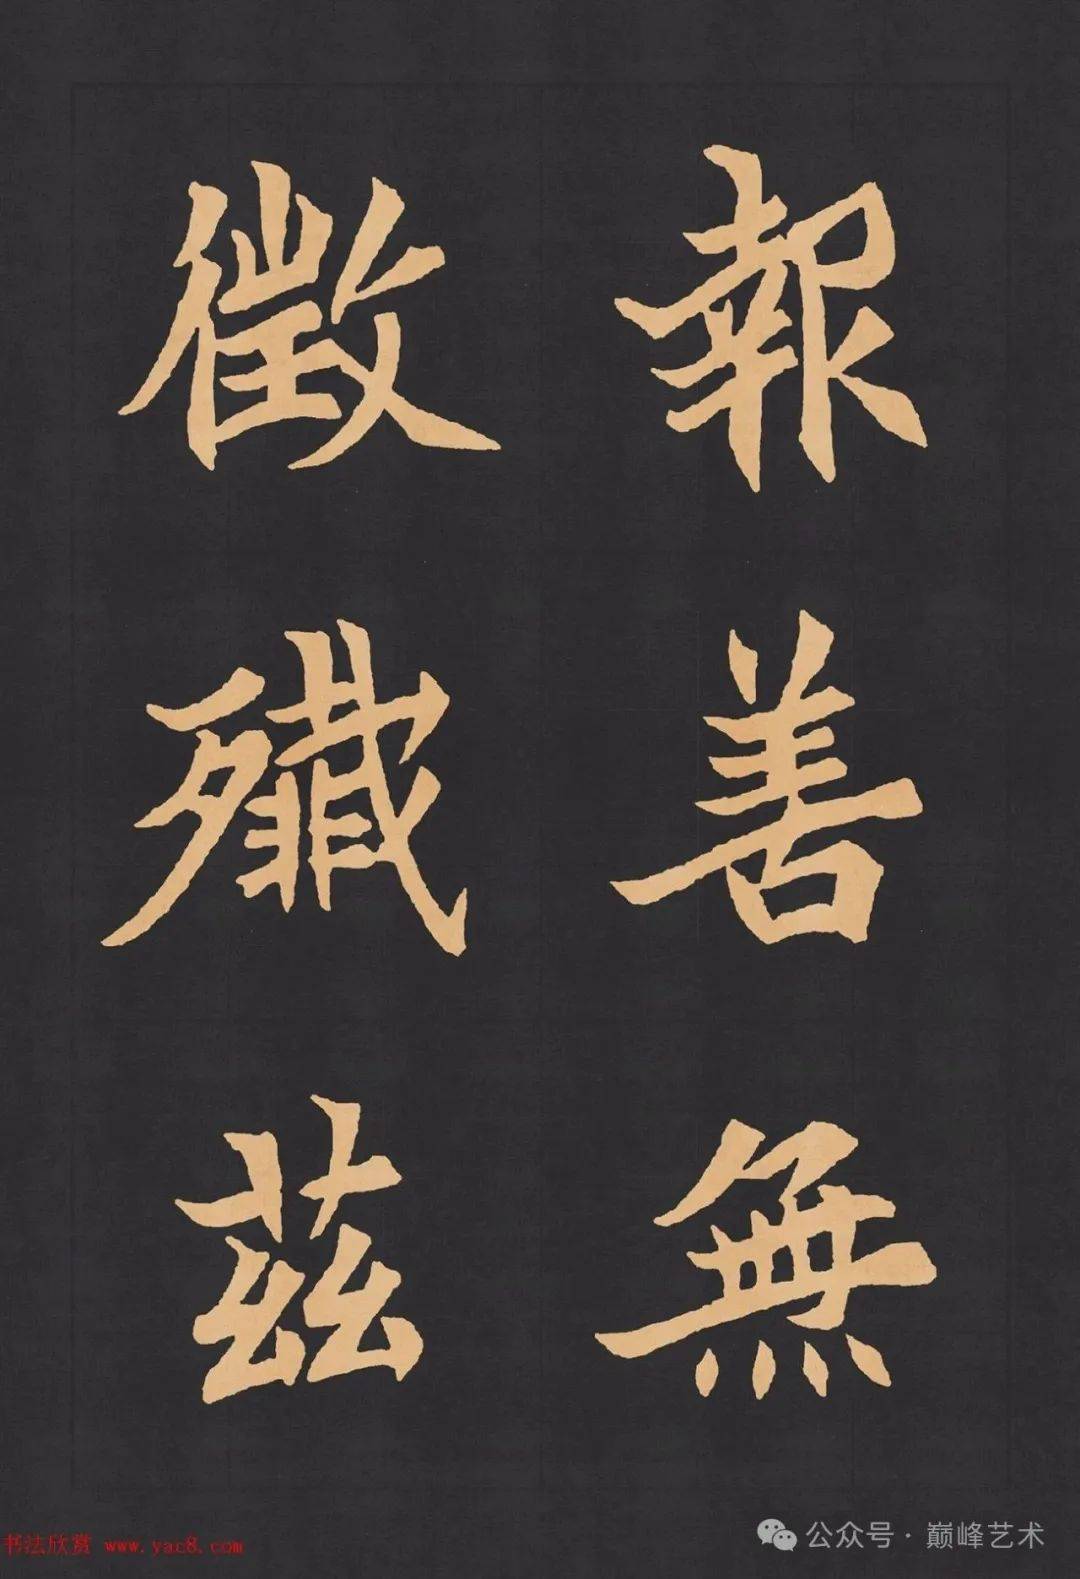 報善無
徵殲茲
书法欣赏 www.yac8.com
公众号·巅峰艺术